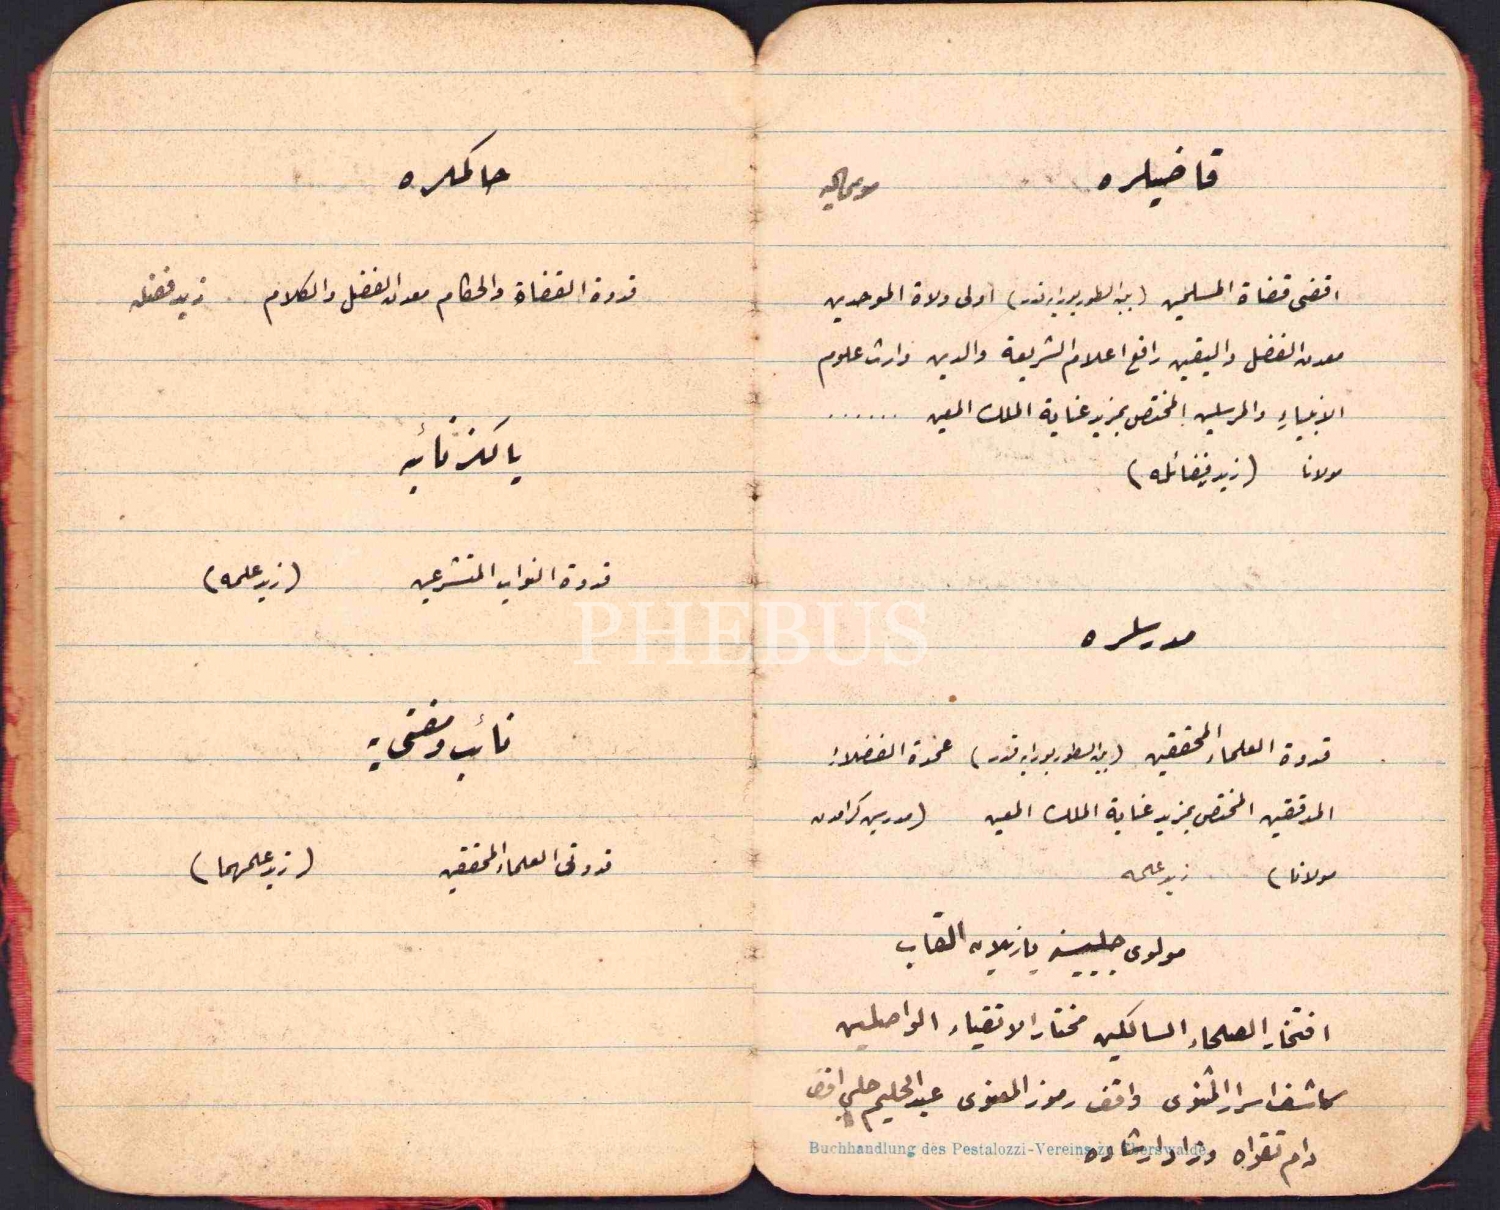 قاضيلره
اقضى قضاة المسلمين (بين السطور يازيلور) اولى ولاة الموحدين
معدن الفضل واليقين رافع اعلام الشريعة والدين وارث علوم
الانبياء والمرسلين المختص بمزيد عناية الملك المعين ......
مولانا (زيد فضائله)
مدرسلره
قدوة العلماء المحققين عمدة الفضلاء
المدققين المختص بمزيد عناية الملك المعين (مدرسين كرامدن
مولانا) زيد علمه
مولوى چلبيسنه يازيلان القاب
افتخار الصلحاء السالكين مختار الاتقياء الواصلين
كاشف اسرار المثنوى واقف رموز المعنوى عبدالحليم چلبى افندى
دام تقواه وزاد ارشاده
Buchhandlung des Pestalozzi-Vereins zu Eberswalde
حاكملره
قدوة القضاة والحكام معدن الفضل والكلام .. زيد فضله
يالكز نائبه
قدوة النواب المتشرعين (زيد علمه)
نائب ومفتى يه
قدوتى العلماء المحققين (زيد علمهما)
PHEBUS